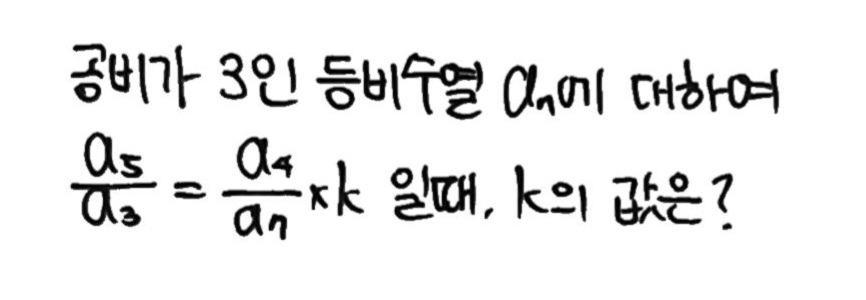 공비가 3인 등비수열 aₙ에 대하여
a₅/a₃ = a₄/a₇ × k 일때, k의 값은?